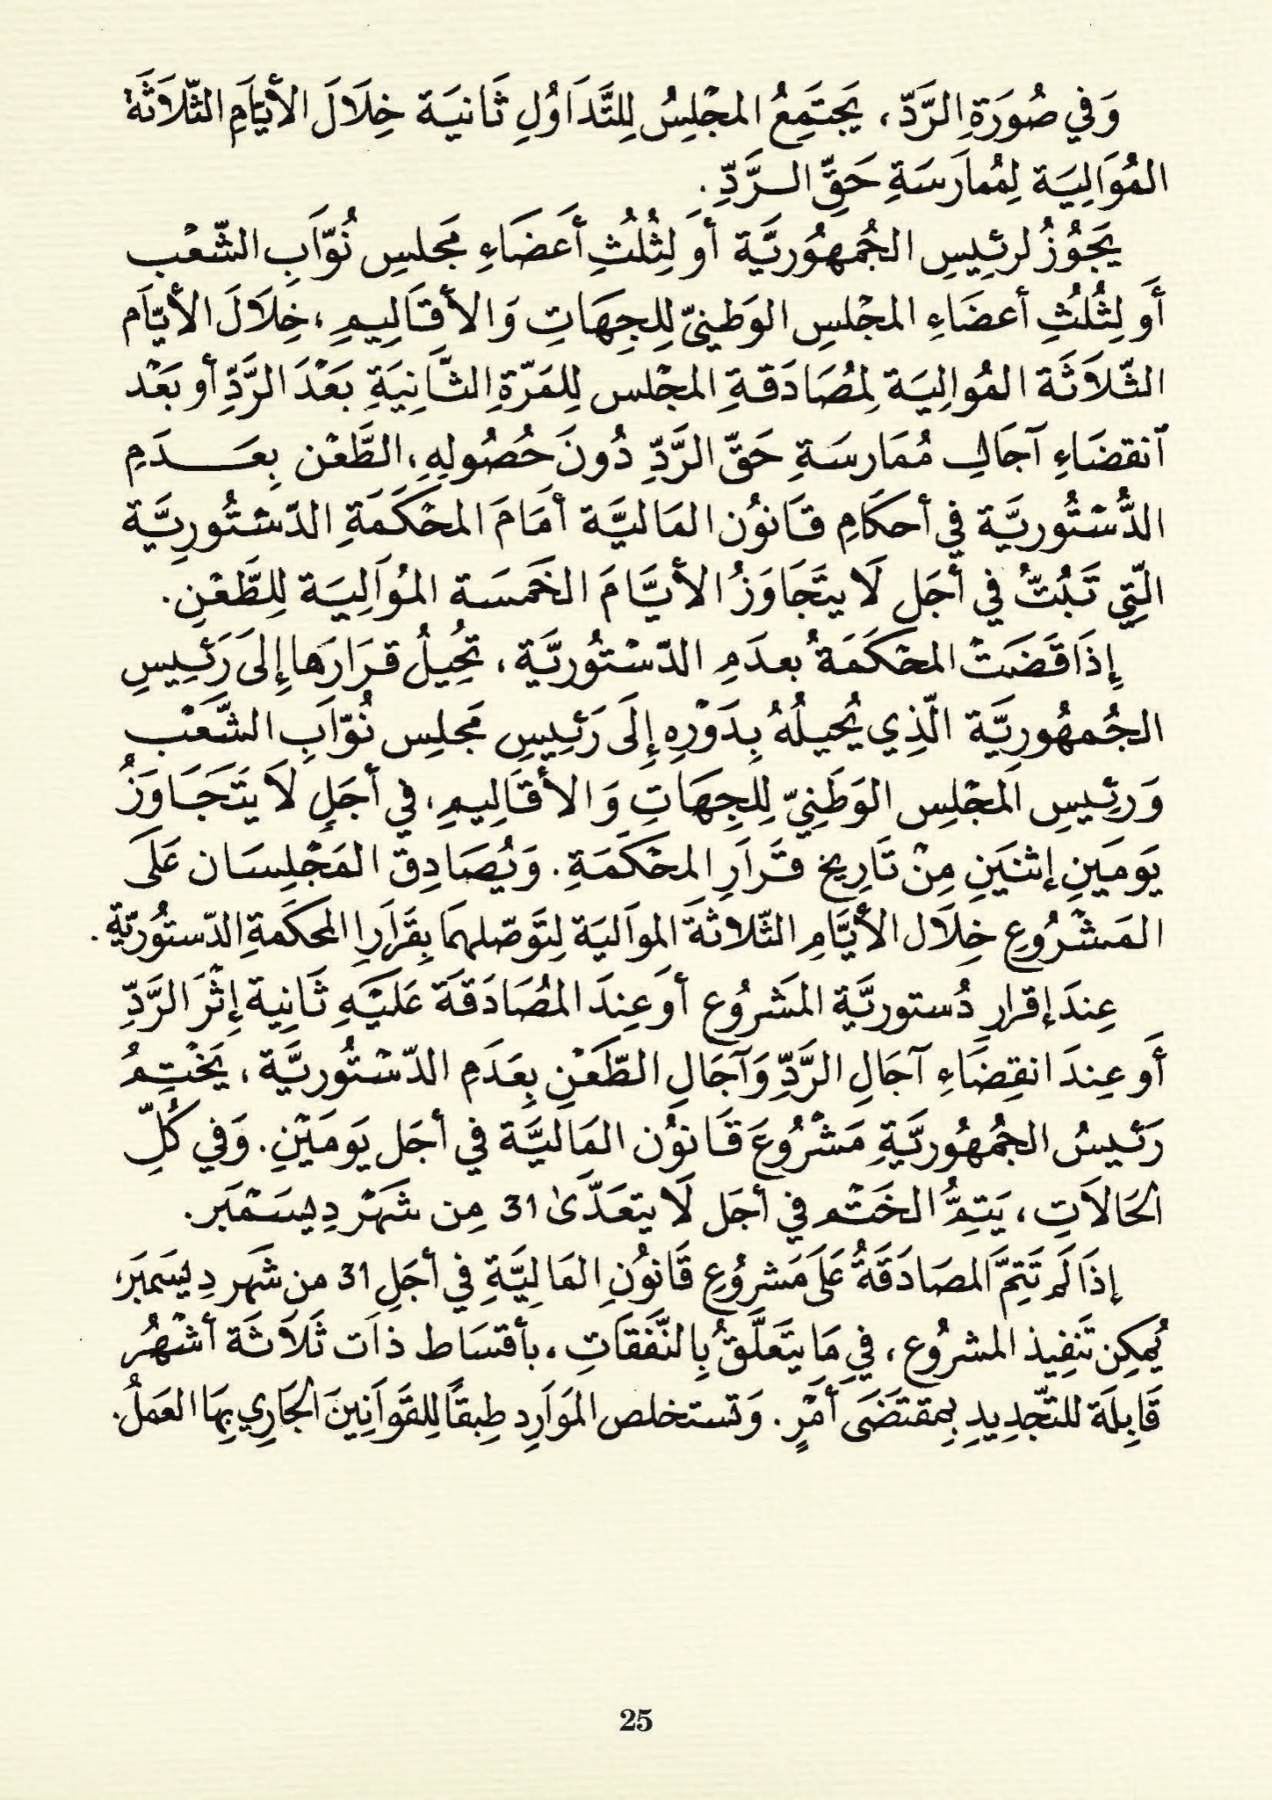 وَفي صُورَةِ الرَّدّ، يَجتَمِعُ المجْلِسُ لِلتَّدَاوُلِ ثَانيَة خِلَالَ الأيّامِ الثّلاثَة
المُوَالِيَة لِمُمارَسَةِ حَقِّ الرَّدِّ.
يَجُوُزُ لرئِيسِ الجُمهُوُريَّة أو لِثُلُثِ أَعضَاءِ مَجلسِ نُوّابِ الشّعْب
أَو لِثُلُثِ أعضَاءِ المجْلسِ الوَطنيّ لِلجِهَاتِ وَالأقَالِيمِ، خِلَالَ الأيّام
الثّلاَثَة المُوالِيَة لِمُصَادَقةِ المجْلس لِلمَرّةِ الثَّانِيَةِ بَعْدَ الرَّدِّ أو بَعْد
ٱنقضَاءِ آجَالِ مُمَارسَةِ حَقّ الرَّدِّ دُونَ حُصُولِهِ، الطَّعْن بِعَدَمِ
الدُّسْتُوريَّة في أحكَامِ قَانوُن المَاليَّة أمَامَ المحْكَمَةِ الدّسْتُورِيَّة
الّتِي تَبُتُّ في أجَل لَا يتَجَاوَزُ الأيَّامَ الخَمسَة المُوَالِيَة لِلطَّعْنِ.
إِذَا قَضَتْ المحْكَمَةُ بعدَمِ الدّسْتُوريَّة، تُحِيلُ قرَارَها إِلىَ رَئِيسِ
الجُمهُورِيَّة الّذِي يُحيلُهُ بِدَوْرِهِ إِلَى رَئِيسِ مَجلِس نُوّابِ الشَّعْب
وَرئِيسِ المَجْلِس الوَطَنِيّ لِلجِهَاتِ وَالأقَاليمِ، في أجَلٍ لَا يتَجَاوَزُ
يَومَينِ إثنَينِ مِنْ تَارِيخ قَرَارِ المحْكَمَةِ. وَيُصَادِق المَجْلِسَان عَلَى
المَشْرُوعِ خِلَال الأيَّامِ الثّلاثَة الموَاليَة لِتَوصّلهمَا بِقَرَارِ المَحكَمَةِ الدّستُوريّةِ.
عِندَ إقرارِ دُستوريَّة المَشرُوع أو عِندَ المُصَادَقَة عَليَهِ ثَانِية إثْرَ الرَّدِّ
أَو عِندَ انقِضَاءِ آجَالِ الرَّدِّ وَآجَالِ الطّعَنِ بِعَدَمِ الدّسْتُوريَّة، يَخْتِمُ
رَئيسُ الجُمُهُوريَّةِ مَشْرُوعَ قَانوُن المَاليَّة في أجَل يَومَيْنِ. وَفي كُلِّ
الحَالَاتِ، يَتِمُّ الخَتْم في أجَل لَا يتعَدَّىٰ 31 مِن شَهْر دِيسَمْبَر.
إذَا لَم تَتِمَّ المصَادَقَةُ عَلَى مَشرُوعِ قَانُونِ المَالِيَّةِ في أجَلِ 31 من شَهر دِيسَمبَر،
يُمكِن تَنفِيذ المشرُوع، في مَا يَتَعَلَّقُ بِالنَّفَقَاتِ، بأقسَاط ذاَت ثَلَاثَة أشْهُرٍ
قَابِلَة للتّجدِيدِ بِمقتَضَى أمْرٍ. وَتستخلص المَوَارِد طِبقًا لِلقَوانِينَ الجَارِي بِهَا العَمَلُ.
25